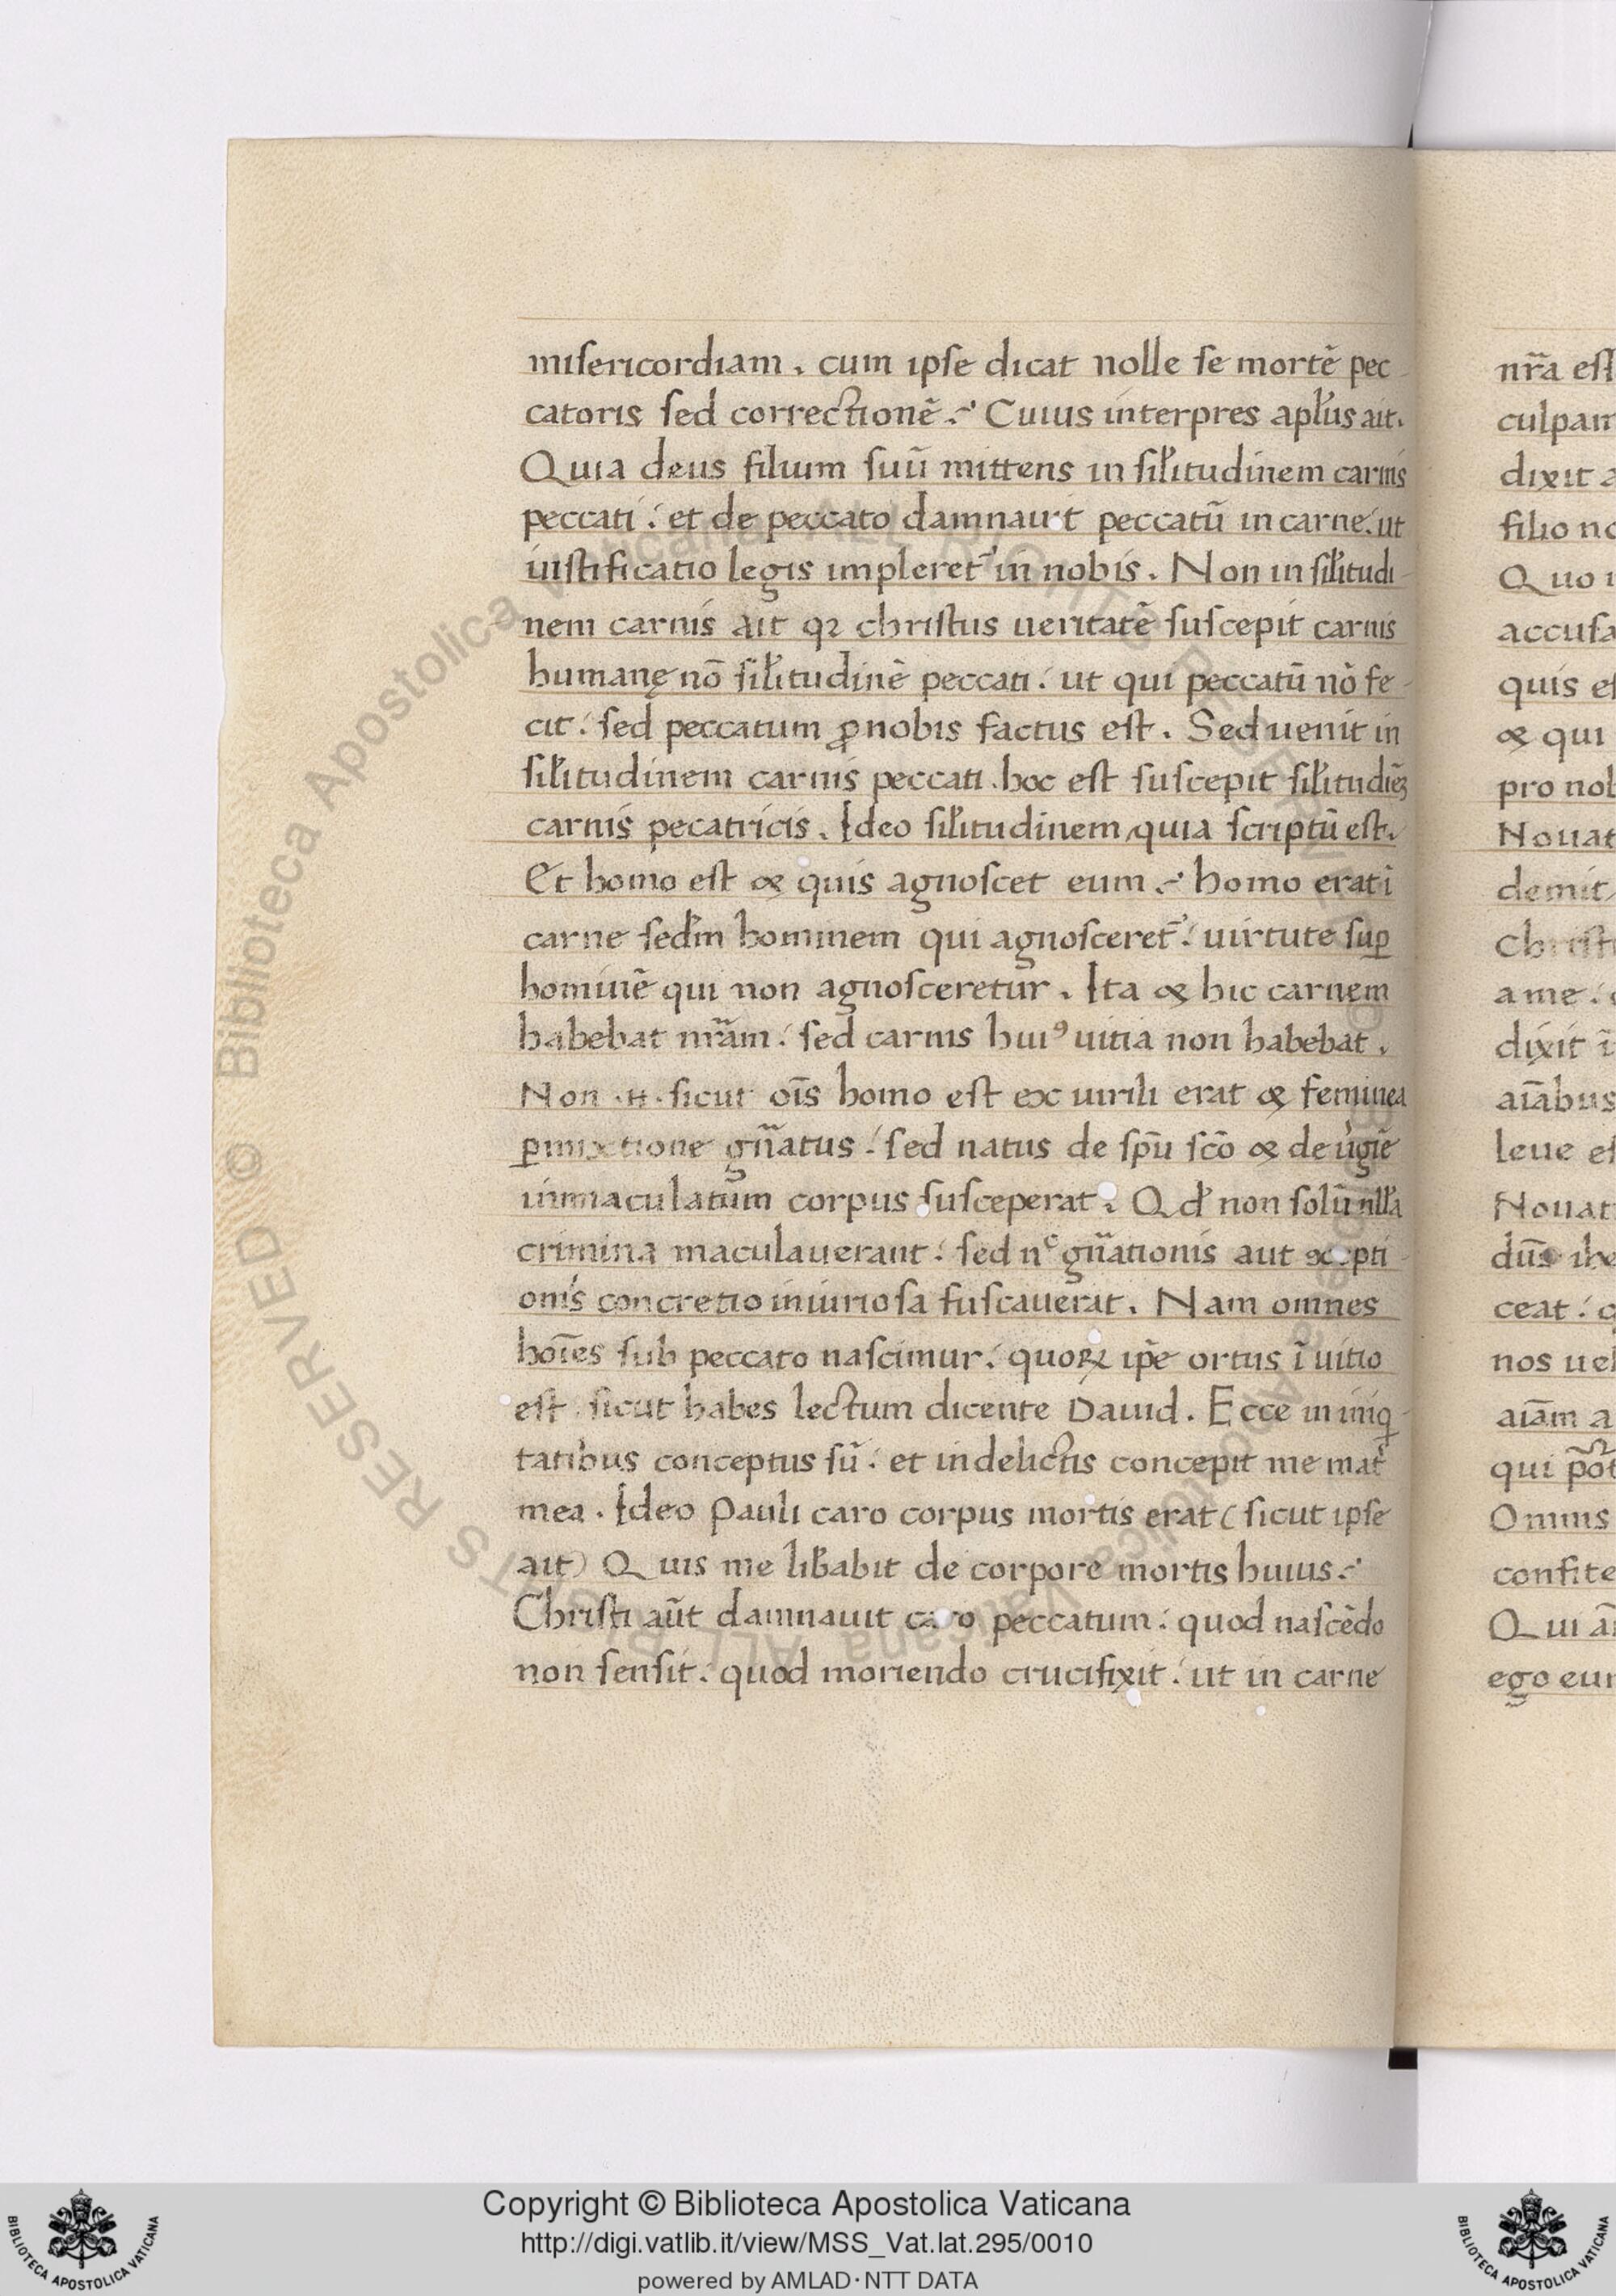 misericordiam. cum ipse dicat nolle se mortē pec-
catoris sed correctionē? Cuius interpres apl̓us ait.
Quia deus filium suū mittens in sil̓itudinem carnis
peccati: et de peccato damnauit peccatū in carne: ut
iustificatio legis impleret᷑ in nobis. Non in sil̓itudi-
nem carnis ait qꝛ christus ueritatē suscepit carnis
humanę nō sil̓itudinē peccati: ut qui peccatū nō fe-
cit: sed peccatum ꝓ nobis factus est. Sed uenit in
sil̓itudinem carnis peccati. hoc est suscepit sil̓itudiēꝫ
carnis pecatricis. Ideo sil̓itudinem, quia scriptū est.
Et homo est & quis agnoscet eum? homo erat ī
carne sed̓m hominem qui agnosceret᷑: uirtute suꝑ
hominē qui non agnosceretur. Ita & hic carnem
habebat nr̄am: sed carnis huiꝰ uitia non habebat.
Non .n. sicut oīs homo est ex uirili erat & feminea
ꝑmixtione gn̄atus: sed natus de spū scō & de uˈgīe
inmaculatum corpus susceperat. Qd̓ non solū nll̓a
crimina maculauerant: sed nᶜ gn̄ationis aut ɔcepti-
onis concretio iniuriosa fuscauerat. Nam omnes
hoīes sub peccato nascimur: quoꝝ ip̄e ortus ī uitio
est, sicut habes lectum dicente Dauid. Ecce in iniq-
tatibus conceptus sū: et in delictis concepit me mat̓
mea. Ideo Pauli caro corpus mortis erat (sicut ipse
ait) Quis me lib̓abit de corpore mortis huius?
Christi aūt damnauit caro peccatum: quod nascēdo
non sensit: quod moriendo crucifixit: ut in carne
nr̄a est
culpam
dixit a
filio no
Quo i
accusa
quis es
& qui
pro nob
Nouat
demit,
Christ
a me:
dixit ī
aīabus
leue es
Nouat
dūs ihe
ceat: q
nos uel
aīam a
qui pōt
Omnis
confite
Qui a
ego eum
© Biblioteca Apostolica Vaticana ALL RIGHTS RESERVED
Copyright © Biblioteca Apostolica Vaticana
http://digi.vatlib.it/view/MSS_Vat.lat.295/0010
powered by AMLAD·NTT DATA
BIBLIOTECA APOSTOLICA VATICANA
BIBLIOTECA APOSTOLICA VATICANA